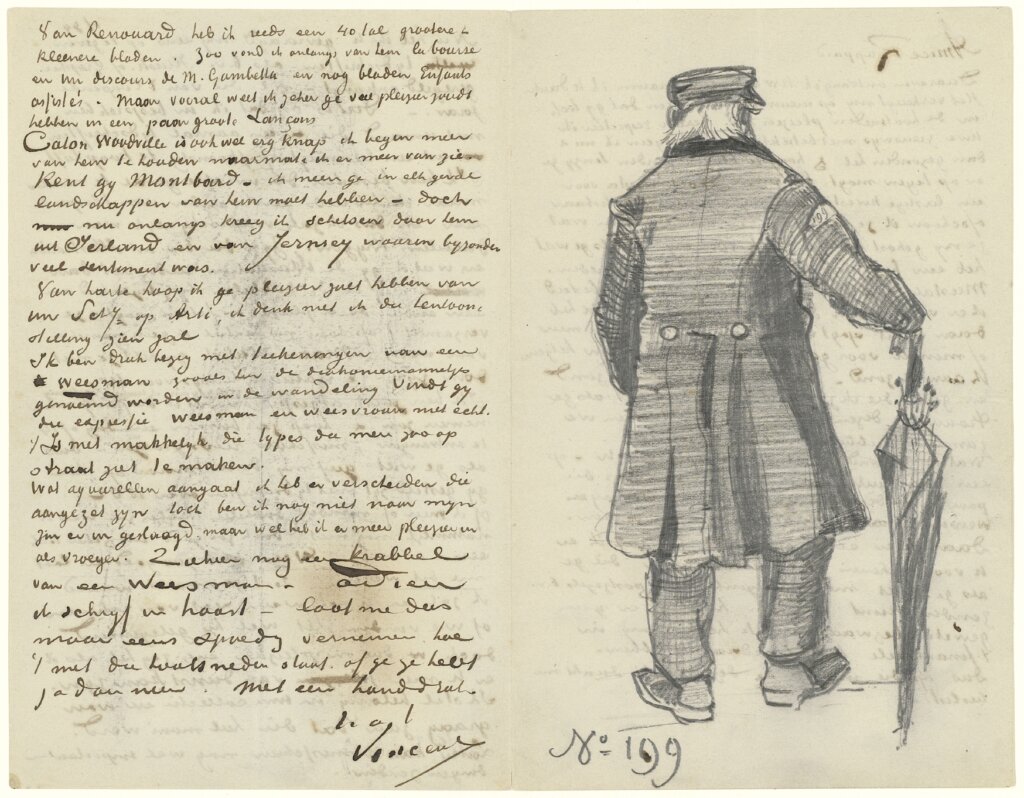 Van Renouard heb ik reeds een 40 tal grootere &
kleenere bladen. Zoo vond ik onlangs van hem la bourse
en un discours de M. Gambetta en nog bladen Enfants
assistés. Maar vooral weet ik zeker ge veel pleizier zoudt
hebben in een paar groote Lançons
Caton Woodville is ook wel erg knap ik begin meer
van hem te houden naarmate ik er meer van zie
Kent gij Montbard – ik meen ge in elk geval
landschappen van hem moet hebben – doch
nu onlangs kreeg ik schetsen door hem
uit Ierland en van Jersey waarin bijzonder
veel sentiment was.
Van harte hoop ik ge pleizier zult hebben van
uw op Arti, ik denk niet ik die tentoon-
stelling zien zal
Ik ben druk bezig met teekeningen van een
weesman zooals hier de diakoniemannetjes
genoemd worden in de wandeling Vindt gij
die expressie weesman en weesvrouw niet echt.
't Is niet makkelijk die types die men zoo op
straat ziet te maken.
Wat aquarellen aangaat ik heb er verscheiden die
aangezet zijn toch ben ik nog niet naar mijn
zin er in geslaagd maar wel heb ik er meer pleizier in
als vroeger. Ziehier nog een krabbel
van een Weesman – adieu
ik schrijf in haast – laat me dus
maar eens spoedig vernemen hoe
't met die houtsneden staat, of ge ze hebt
ja dan neen. Met een handdruk.
t. à t.
Vincent
199
No 199